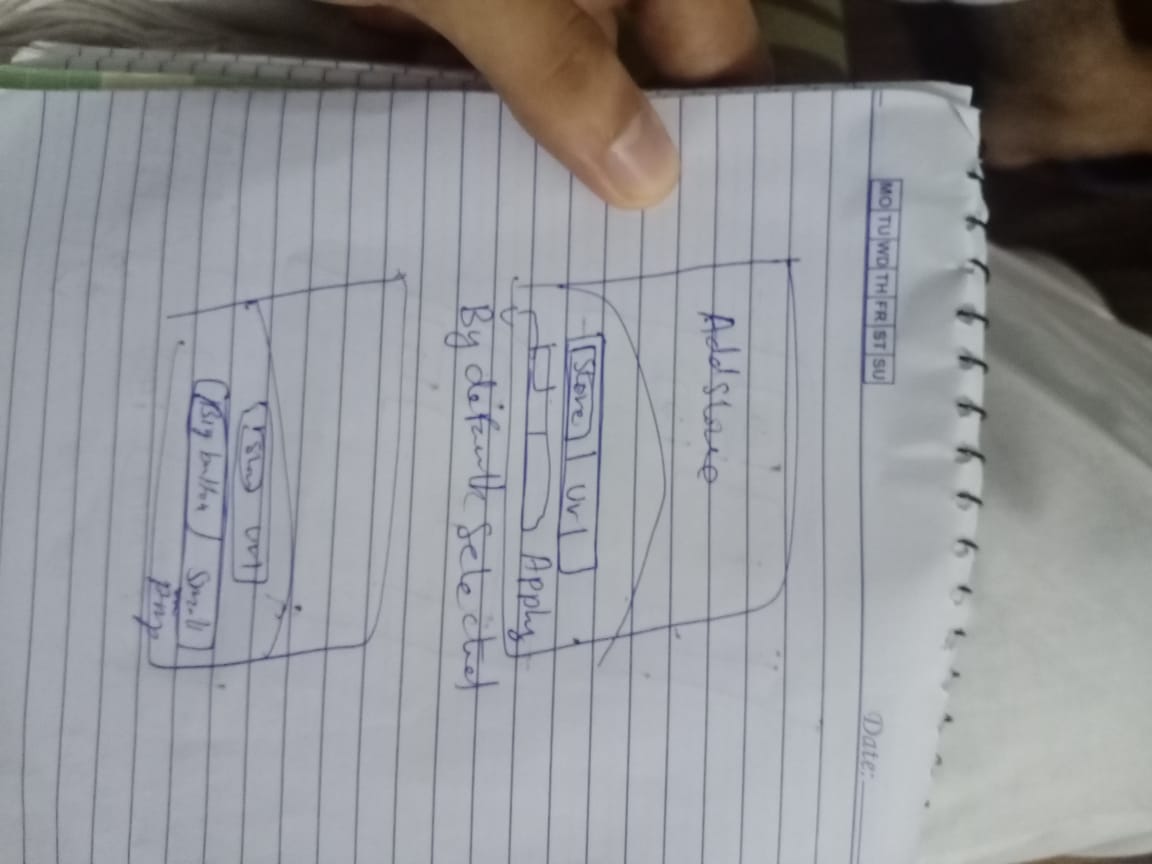 MO TU WD TH FR ST SU
Date:
Add Store
Store url
Apply
By default Selected
url
Big button Small